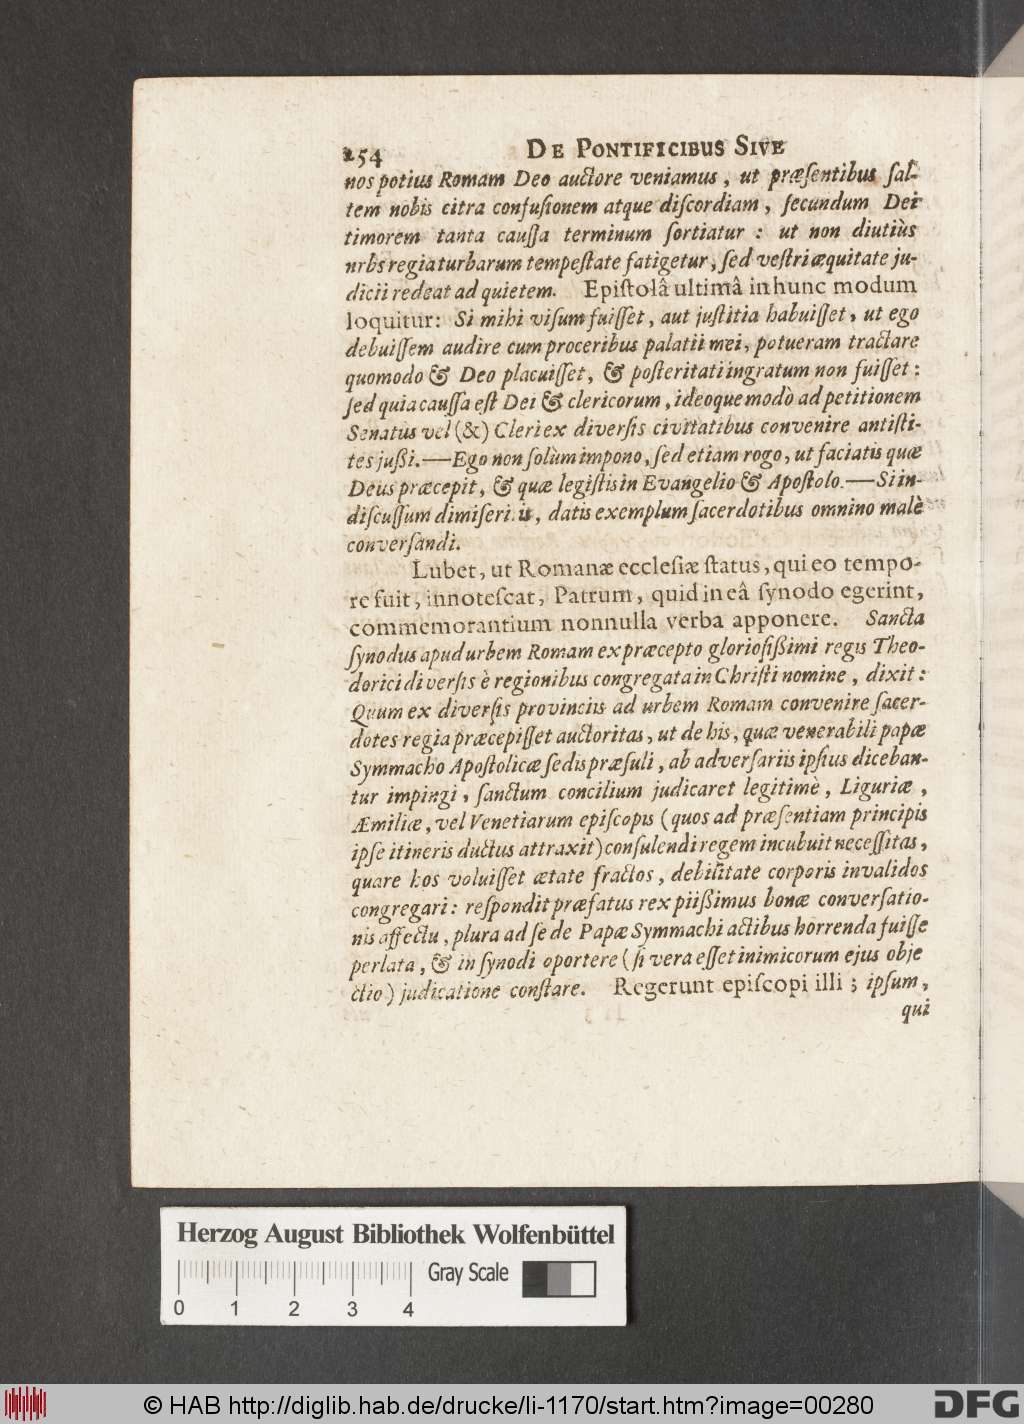 254 DE PONTIFICIBUS SIVE
nos potius Romam Deo auctore veniamus, ut præſentibus ſal-
tem nobis citra confuſionem atque diſcordiam, ſecundum Dei
timorem tanta cauſſa terminum ſortiatur : ut non diutiùs
urbs regia turbarum tempeſtate fatigetur, ſed veſtri æquitate ju-
dicii redeat ad quietem. Epiſtolâ ultimâ in hunc modum
loquitur: Si mihi viſum fuiſſet, aut juſtitia habuiſſet, ut ego
debuiſſem audire cum proceribus palatii mei, potueram tractare
quomodo & Deo placuiſſet, & poſteritati ingratum non fuiſſet :
ſed quia cauſſa eſt Dei & clericorum, ideoque modò ad petitionem
Senatus vel (&) Cleri ex diverſis civitatibus convenire antiſti-
tes jußi.—Ego non ſolùm impono, ſed etiam rogo, ut faciatis quæ
Deus præcepit, & quæ legiſtis in Evangelio & Apoſtolo.—Si in-
diſcuſſum dimiſeritis, datis exemplum ſacerdotibus omnino malè
converſandi.
Lubet, ut Romanæ eccleſiæ ſtatus, qui eo tempo-
re fuit, innoteſcat, Patrum, quid in eâ ſynodo egerint,
commemorantium nonnulla verba apponere. Sancta
ſynodus apud urbem Romam ex præcepto glorioſißimi regis Theo-
dorici diverſis è regionibus congregata in Chriſti nomine, dixit :
Quum ex diverſis provinciis ad urbem Romam convenire ſacer-
dotes regia præcepiſſet auctoritas, ut de his, quæ venerabili papæ
Symmacho Apoſtolicæ ſedis præſuli, ab adverſariis ipſius diceban-
tur impingi, ſanctum concilium judicaret legitimè, Liguriæ,
Æmiliæ, vel Venetiarum epiſcopis (quos ad præſentiam principis
ipſe itineris ductus attraxit) conſulendi regem incubuit neceſſitas,
quare hos voluiſſet ætate fractos, debilitate corporis invalidos
congregari : reſpondit præfatus rex piißimus bonæ converſatio-
nis affectu, plura ad ſe de Papæ Symmachi actibus horrenda fuiſſe
perlata, & in ſynodi oportere (ſi vera eſſet inimicorum ejus obje
ctio) judicatione conſtare. Regerunt epiſcopi illi ; ipſum,
qui
Herzog August Bibliothek Wolfenbüttel
Gray Scale
0 1 2 3 4
© HAB http://diglib.hab.de/drucke/li-1170/start.htm?image=00280
DFG